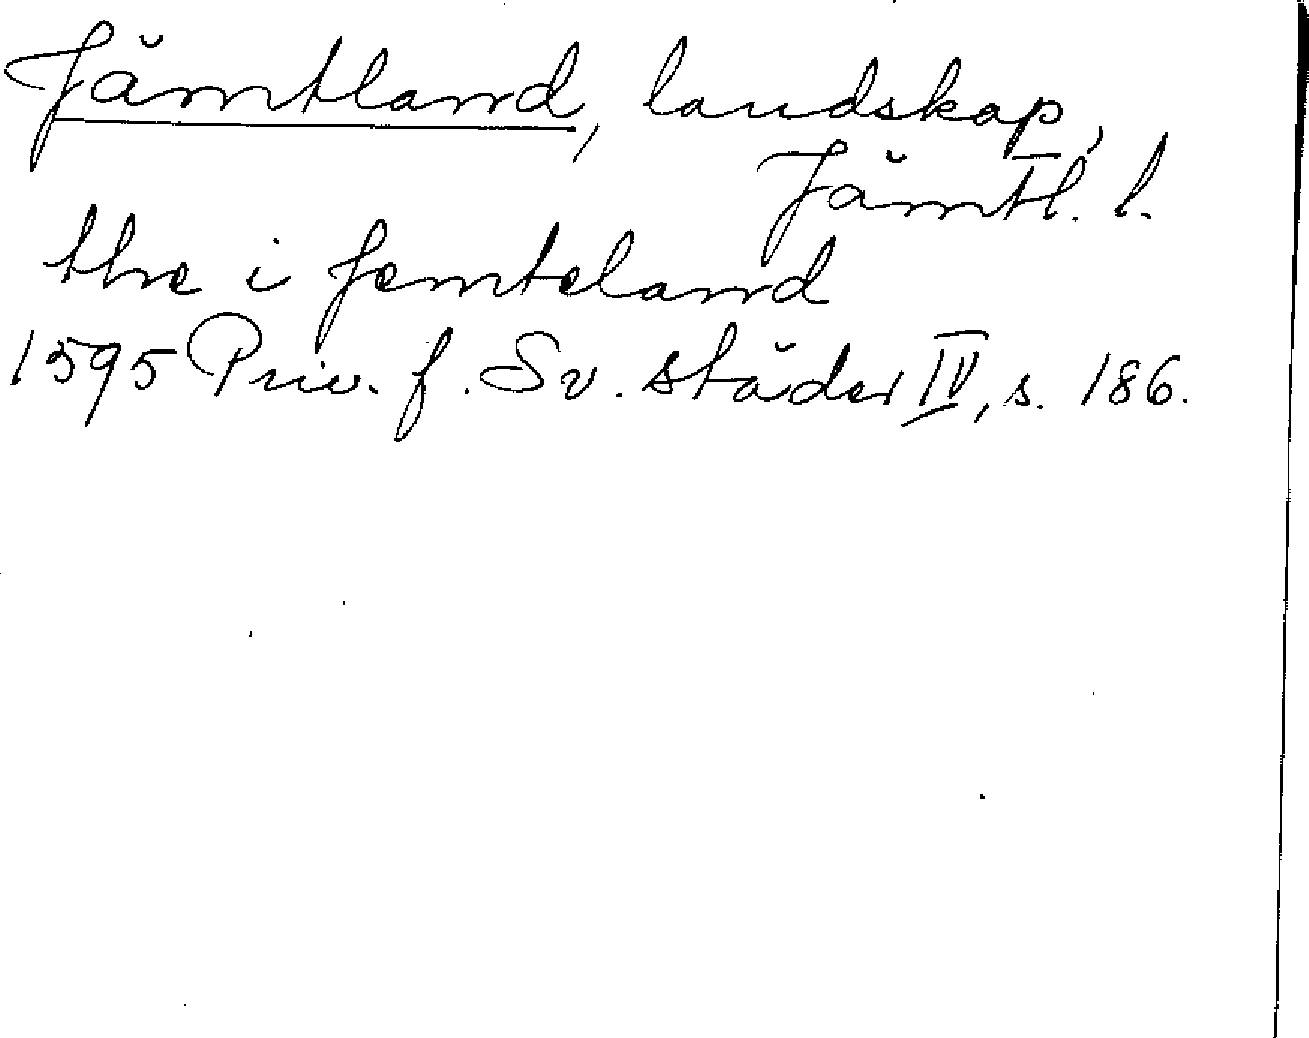 Jämtland, landskap,
Jämtl. l.
the i Jemteland
1595 Priv. f. Sv. städer IV, s. 186.